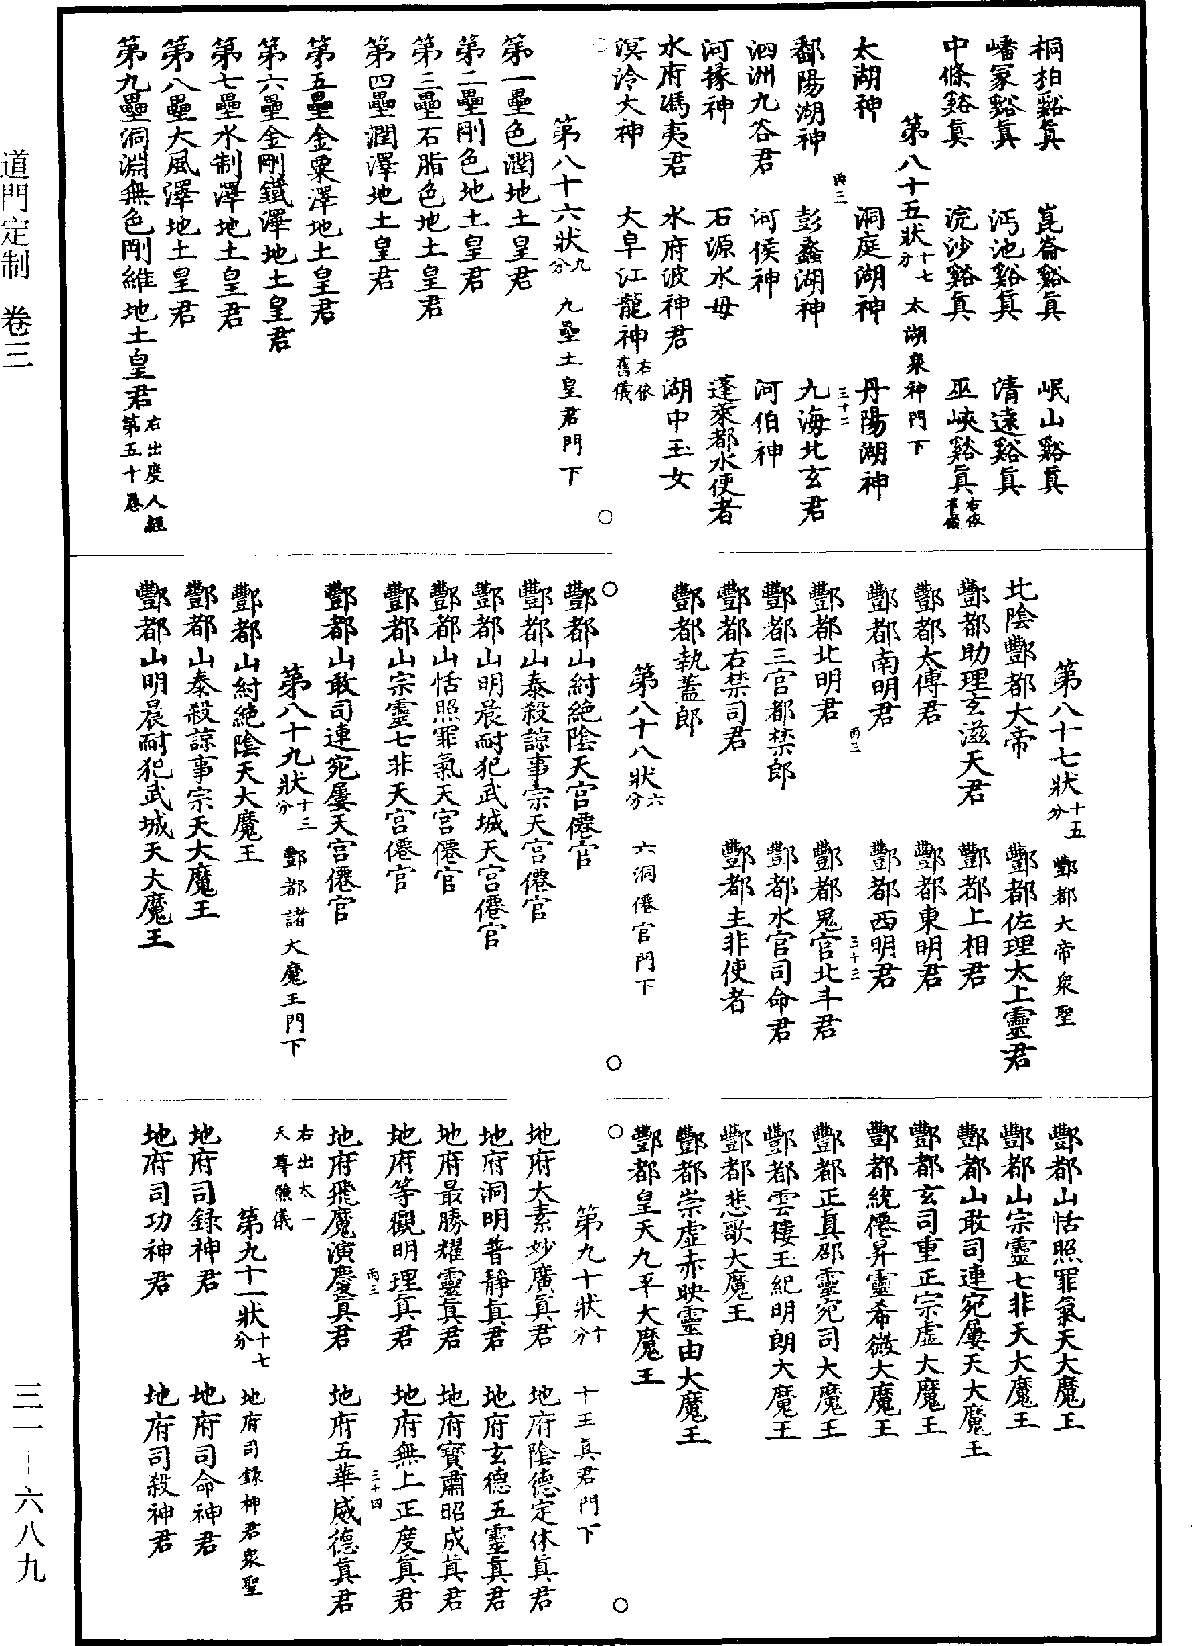 道門定制　卷三
桐柏谿真　崑崙谿真　岷山谿真
嶓冢谿真　沔池谿真　清遠谿真
中條谿真　浣沙谿真　巫峽谿真右依舊儀
第八十五狀十七分　太湖衆神門下
太湖神　洞庭湖神　丹陽湖神
丙三　三十二
鄱陽湖神　彭蠡湖神　九海北玄君
泗洲九谷君　河侯神　河伯神
河掾神　石源水母　蓬萊都水使者
水府馮夷君　水府波神君　湖中玉女
溟泠大神　大皐江龍神右依舊儀
第八十六狀九分　九壘土皇君門下
第一壘色潤地土皇君
第二壘剛色地土皇君
第三壘石脂色地土皇君
第四壘潤澤地土皇君
第五壘金粟澤地土皇君
第六壘金剛鐵澤地土皇君
第七壘水制澤地土皇君
第八壘大風澤地土皇君
第九壘洞淵無色剛維地土皇君右出度人經第五十卷
第八十七狀十五分　酆都大帝衆聖
北陰酆都大帝　酆都佐理太上靈君
酆都助理玄滋天君　酆都上相君
酆都太傅君　酆都東明君
酆都南明君　酆都西明君
丙三　三十三
酆都北明君　酆都鬼官北斗君
酆都三官都禁郎　酆都水官司命君
酆都右禁司君　酆都主非使者
酆都執蓋郎
第八十八狀六分　六洞僊官門下
酆都山紂絕陰天宮僊官
酆都山泰殺諒事宗天宮僊官
酆都山明晨耐犯武城天宮僊官
酆都山恬照罪氣天宮僊官
酆都山宗靈七非天宮僊官
酆都山敢司連宛屢天宮僊官
第八十九狀十三分　酆都諸大魔王門下
酆都山紂絕陰天大魔王
酆都山泰殺諒事宗天大魔王
酆都山明晨耐犯武城天大魔王
酆都山恬照罪氣天大魔王
酆都山宗靈七非天大魔王
酆都山敢司連宛屢天大魔王
酆都玄司重正宗虛大魔王
酆都統僊昇靈希微大魔王
酆都正真郡靈宛司大魔王
酆都雲樓玉紀明朗大魔王
酆都悲歌大魔王
酆都崇虛赤映靈由大魔王
酆都皇天九平大魔王
第九十狀十分　十王真君門下
地府太素妙廣真君　地府陰德定休真君
地府洞明普靜真君　地府玄德五靈真君
地府最勝耀靈真君　地府寶肅昭成真君
地府等觀明理真君　地府無上正度真君
丙三　三十四
地府飛魔演慶真君　地府五華威德真君
右出太一天尊懺儀
第九十一狀十七分　地府司錄神君衆聖
地府司錄神君　地府司命神君
地府司功神君　地府司殺神君
三一－六八九